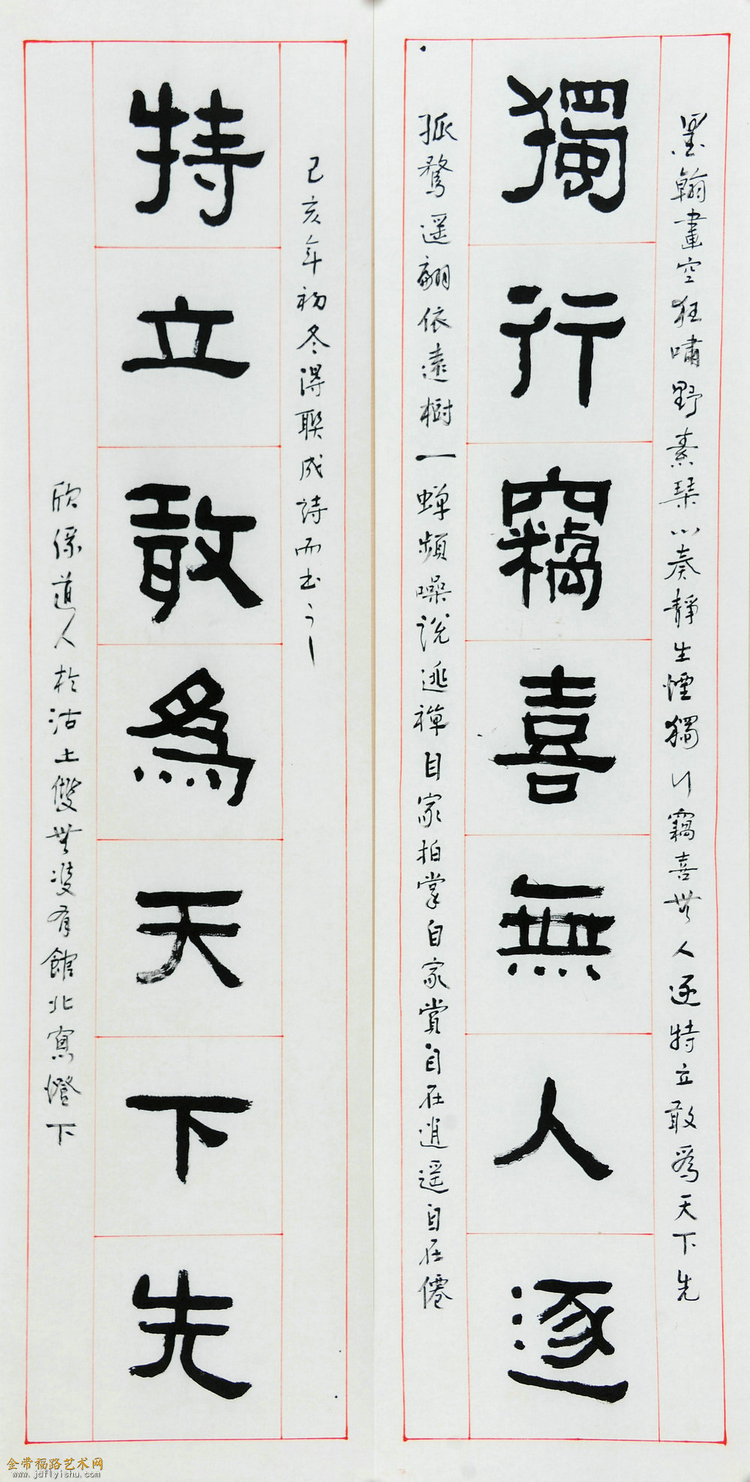 墨翰畫空狂嘯野素琴小奏靜生煙獨行竊喜無人逐特立敢為天下先
獨行竊喜無人逐
孤鶩遥翩依遠樹一蟬頻噪說逃禪自家拍掌自家賞自在逍遥自在僊
己亥年初冬得聯成詩而書之
特立敢為天下先
欣係道人於沽上雙無雙有館北窗燈下
金带福路艺术网
www.jdflyishu.com